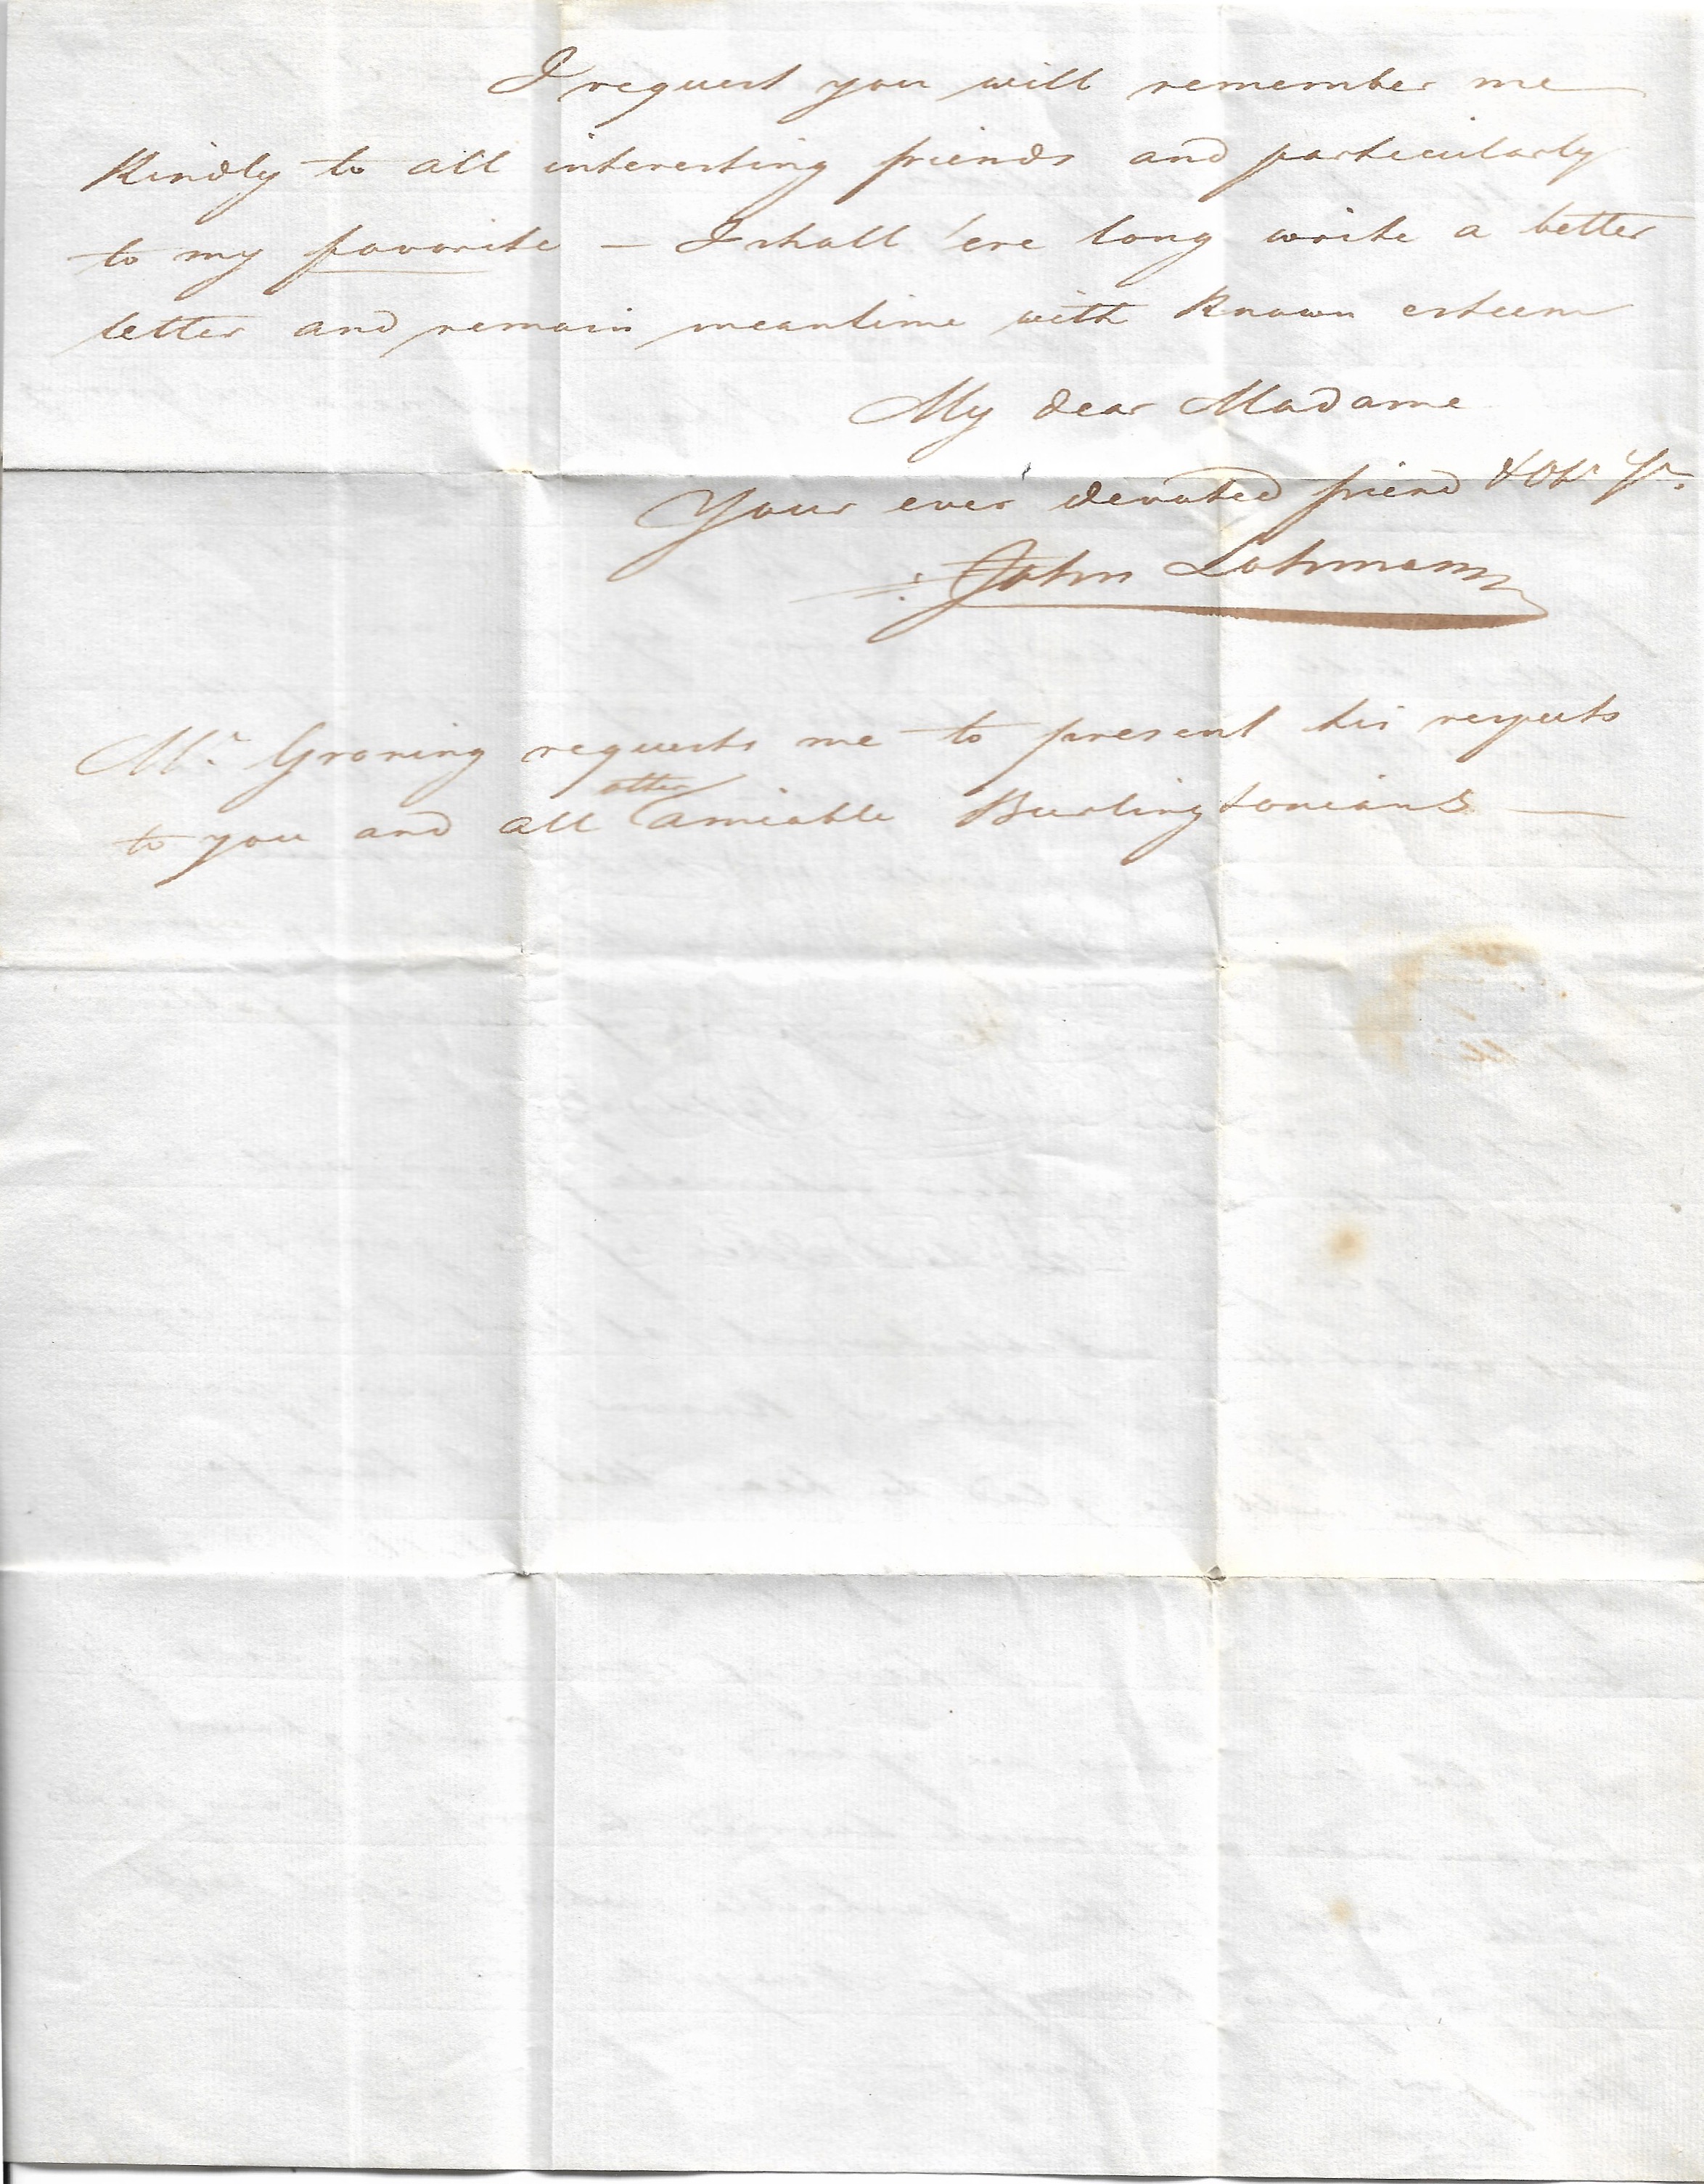 I request you will remember me
Kindly to all interesting friends and particularly
to my favorite – I shall 'ere long write a better
letter and remain meantime with Known esteem
My dear Madame
Your ever devoted friend
John Lohmann
Mr. Groning requests me to present his respects
other
to you and all amiable Burlingtonians —